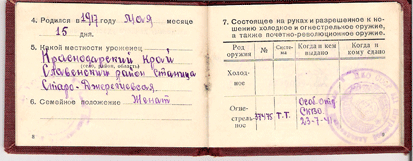 4. Родился в 1917 году мая месяце
15 дня.
5. Какой местности уроженец
Краснодарский край
Славянский район станица
(село, район, область)
Старо-Джерелиевская
6. Семейное положение Женат
8
7. Состоящее на руках и разрешенное к но-
шению холодное и огнестрельное оружие,
а также почетно-революционное оружие.
Род оружия № Систе-ма Когда и кем выдано Когда и кому сдано
Холод-
ное
Огне-
стрель-
ное Т.Т. Особ. отд.
СКВО
23-7-41